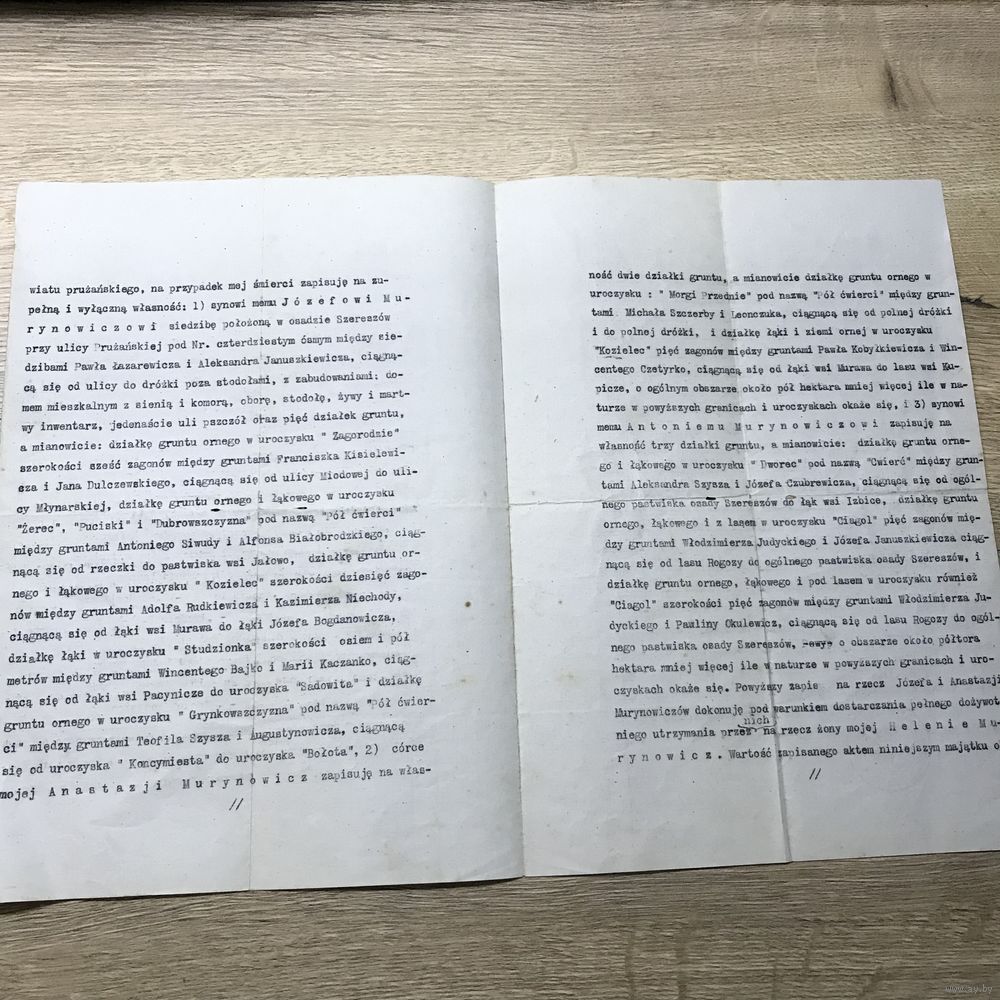 wiatu prużańskiego, na przypadek mej śmierci zapisuję na zu-
pełną i wyłączną własność: 1) synowi memu J ó z e f o w i  M u -
r y n o w i c z o w i  siedzibę położoną w osadzie Szereszów
przy ulicy Prużańskiej pod Nr. czterdziestym ósmym między sie-
dzibami Pawła Łazarewicza i Aleksandra Januszkiewicza, ciągną-
cą się od ulicy do dróżki poza stodołami, z zabudowaniami: do-
mem mieszkalnym z sienią i komorą, oborę, stodołę, żywy i mart-
wy inwentarz, jedenaście uli pszczół oraz pięć działek gruntu,
a mianowicie: działkę gruntu ornego w uroczysku " Zagorodzie"
szerokości sześć zagonów między gruntami Franciszka Kisielewi-
cza i Jana Dulczewskiego, ciągnącą się od ulicy Miodowej do uli-
cy Młynarskiej, działkę gruntu ornego i łąkowego w uroczysku
"Żerec", "Puciski" i "Dubrowszczyzna" pod nazwą "Pół ćwierci"
między gruntami Antoniego Siwudy i Alfonsa Białobrodzkiego, ciąg-
nącą się od rzeczki do pastwiska wsi Jałowo, działkę gruntu or-
nego i łąkowego w uroczysku " Kozielec" szerokości dziesięć zago-
nów między gruntami Adolfa Rudkiewicza i Kazimierza Niechody,
ciągnącą się od łąki wsi Murawa do łąki Józefa Bogdanowicza,
działkę łąki w uroczysku " Studzionka" szerokości osiem i pół
metrów między gruntami Wincentego Bajko i Marii Kaczanko, ciąg-
nącą się od łąki wsi Pacynicze do uroczyska "Sadowita" i działkę
gruntu ornego w uroczysku " Grynkowszczyzna" pod nazwą "Pół ćwier-
ci" między gruntami Teofila Szysza i Augustynowicza, ciągnącą
się od uroczyska " Koncymiesta" do uroczyska "Bołota", 2) córce
mojej A n a s t a z j i  M u r y n o w i c z zapisuję na włas-
//
ność dwie działki gruntu, a mianowicie działkę gruntu ornego w
uroczysku : " Morgi Przednie" pod nazwą "Pół ćwierci" między grun-
tami Michała Szczerby i Leonczuka, ciągnącą się od polnej dróżki
i do polnej dróżki, i działkę łąki i ziemi ornej w uroczysku
"Kozielec" pięć zagonów między gruntami Pawła Kobyłkiewicza i Win-
centego Czetyrko, ciągnącą się od łąki wsi Murawa do lasu wsi Ku-
picze, o ogólnym obszarze około pół hektara mniej więcej ile w na-
turze w powyższych granicach i uroczyskach okaże się, i 3) synowi
memu A n t o n i e m u  M u r y n o w i c z o w i  zapisuję na
własność trzy działki gruntu, a mianowicie: działkę gruntu orne-
go i łąkowego w uroczysku "Dworec" pod nazwą "Ćwierć" między grun-
tami Aleksandra Szysza i Józefa Czubrewicza, ciągnącą się od ogól-
nego pastwiska osady Szereszów do łąk wsi Izbice, działkę gruntu
ornego, łąkowego i z lasem w uroczysku "Ciagol" pięć zagonów mię-
dzy gruntami Włodzimierza Judyckiego i Józefa Januszkiewicza ciąg-
nącą się od lasu Rogozy do ogólnego pastwiska osady Szereszów, i
działkę gruntu ornego, łąkowego i pod lasem w uroczysku również
"Ciagol" szerokości pięć zagonów między gruntami Włodzimierza Ju-
dyckiego i Pauliny Okulewicz, ciągnącą się od lasu Rogozy do ogól-
nego pastwiska osady Szereszów, o obszarze około półtora
hektara mniej więcej ile w naturze w powyższych granicach i uro-
czyskach okaże się. Powyższy zapis na rzecz Józefa i Anastazji
Murynowiczów dokonuję pod warunkiem dostarczania pełnego dożywot
nich
niego utrzymania przez na rzecz żony mojej H e l e n i e  M u-
r y n o w i c z . Wartość zapisanego aktem niniejszym majątku o
//
www.ay.by